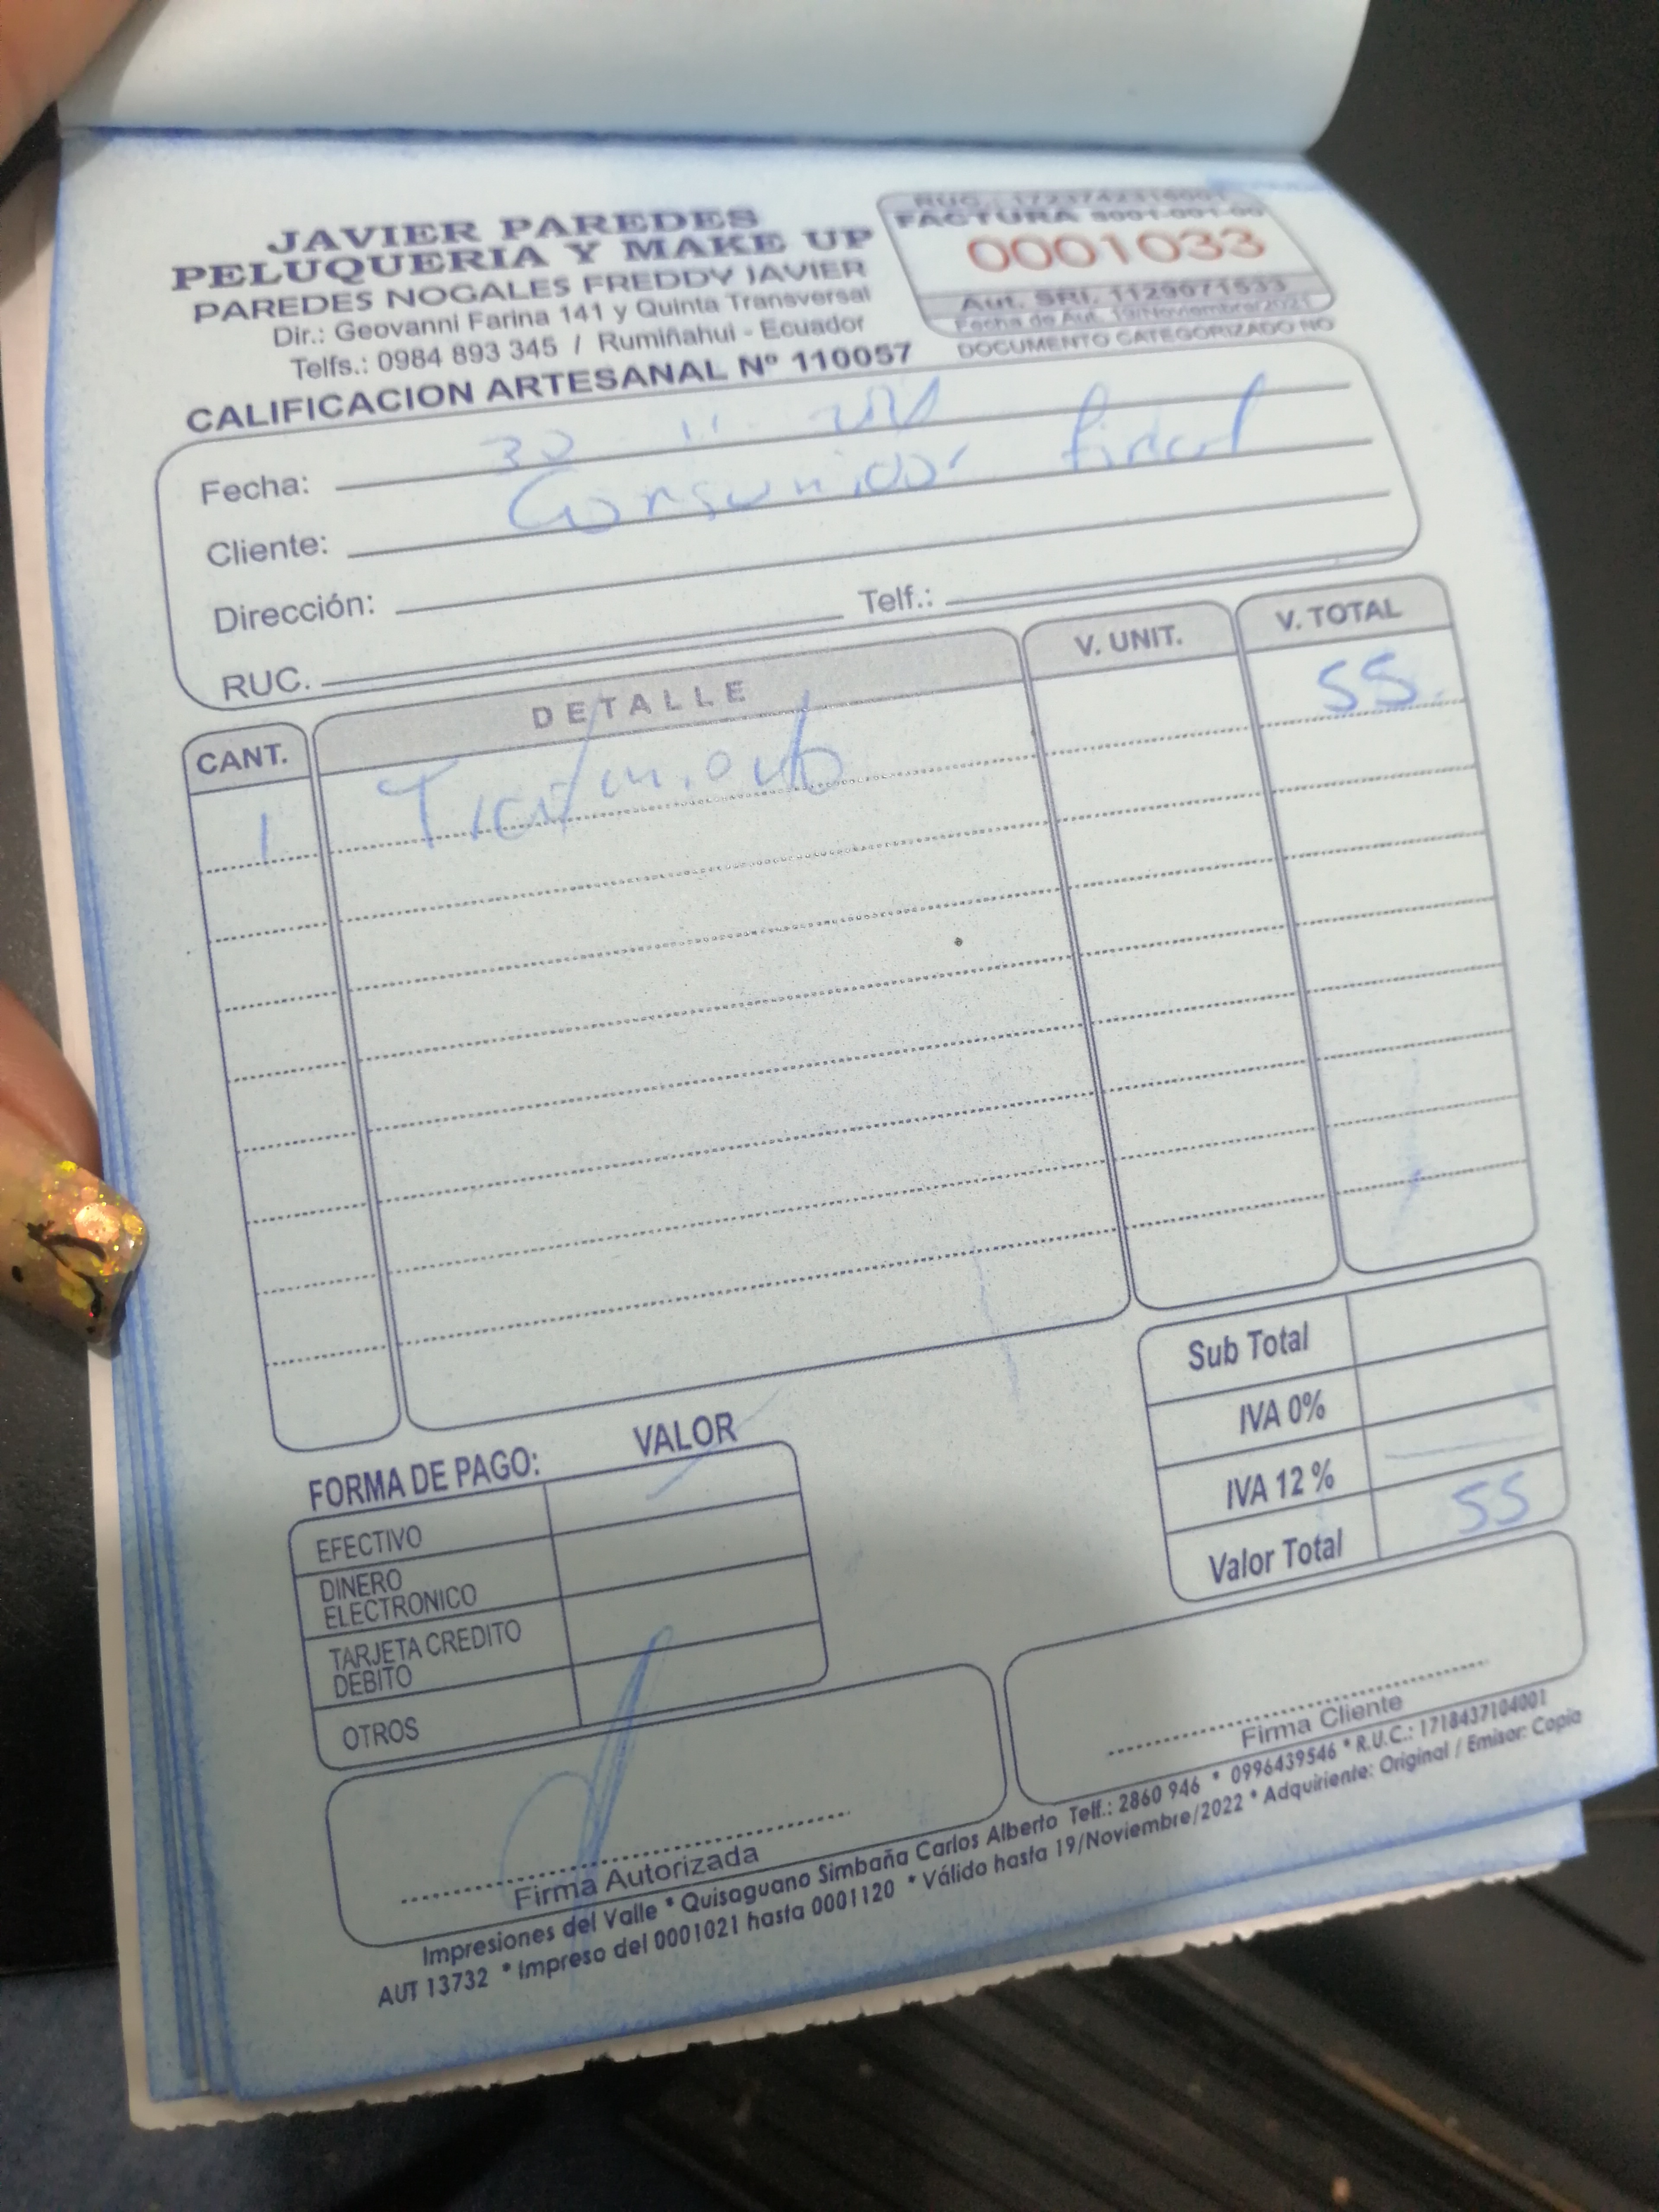 JAVIER PAREDES
PELUQUERIA Y MAKE UP
PAREDES NOGALES FREDDY JAVIER
Dir.: Geovanni Farina 141 y Quinta Transversal
Telfs.: 0984 893 345 / Rumiñahui - Ecuador
CALIFICACION ARTESANAL Nº 110057
RUC.
FACTURA
0001033
Aut. SRI. 1129071533
Fecha de Aut. 19/Noviembre/2021
DOCUMENTO CATEGORIZADO NO
Fecha: 30 11
Cliente: Consumidor final
Dirección:
RUC. Telf.:
CANT. DETALLE V. UNIT. V. TOTAL
1 Tratamiento 55
Sub Total
IVA 0%
IVA 12 %
Valor Total 55
FORMA DE PAGO: VALOR
EFECTIVO
DINERO
ELECTRONICO
TARJETA CREDITO
DEBITO
OTROS
Firma Autorizada
Firma Cliente
Impresiones del Valle * Quisaguano Simbaña Carlos Alberto Telf.: 2860 946 * 0996439546 * R.U.C.: 1718437104001
AUT 13732 * Impreso del 0001021 hasta 0001120 * Válido hasta 19/Noviembre/2022 * Adquiriente: Original / Emisor: Copia